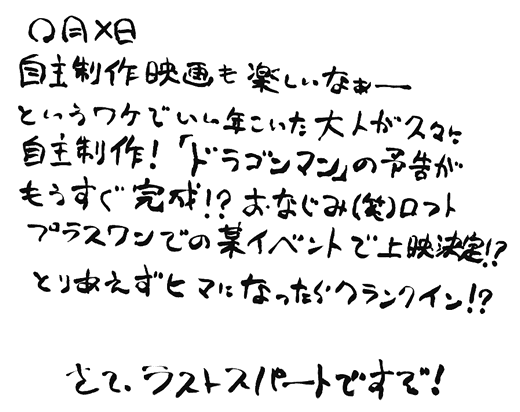 〇月×日
自主制作映画も楽しいなぁー
というワケでいい年こいた大人が久々に
自主制作!「ドラゴンマン」の予告が
もうすぐ完成!?おなじみ(笑)ロフト
プラスワンでの某イベントで上映決定!?
とりあえずヒマになったらクランクイン!?
さて、ラストスパートですぞ!